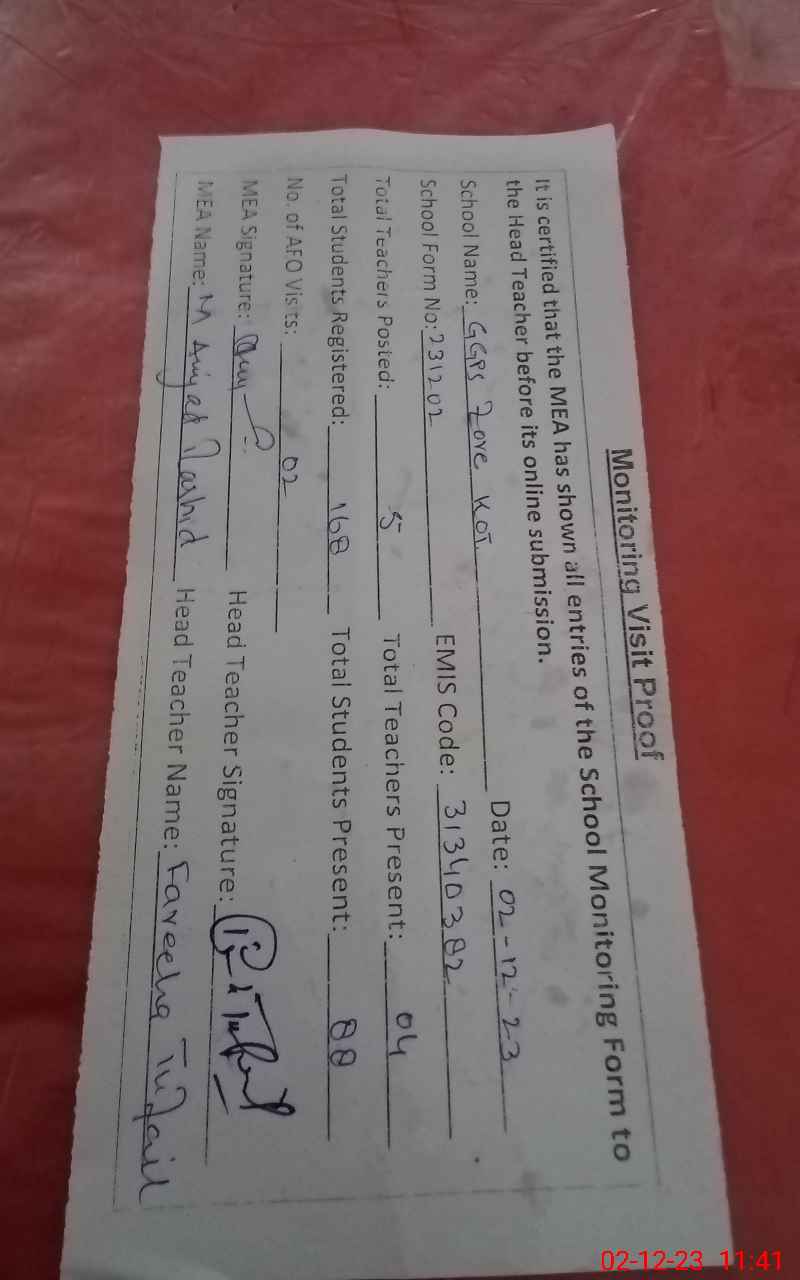 Monitoring Visit Proof
It is certified that the MEA has shown all entries of the School Monitoring Form to
the Head Teacher before its online submission.
School Name: GGPS Zore Kot Date: 02-12-23
School Form No: 231202 EMIS Code: 31340382
Total Teachers Posted: 5 Total Teachers Present: 04
Total Students Registered: 168 Total Students Present: 88
No. of AFO Visits: 02
MEA Signature: Head Teacher Signature:
MEA Name: M Rashid Head Teacher Name: Fareeha Tufail
02-12-23 11:41